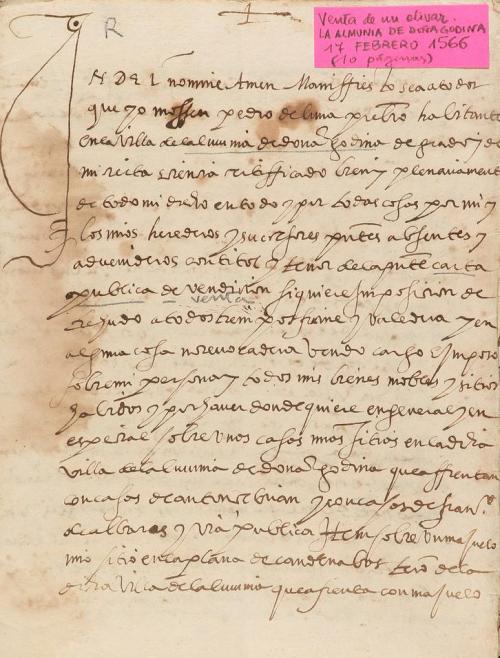 Venta de un olivar.
LA ALMUNIA DE DOÑA GODINA
17 FEBRERO 1566
(10 páginas)
R
IN DEI nomine Amen Maniffiesto sea a todos
que yo mossen pedro de luna pie habitante
en la villa de la lmunia de dona godina de grado y de
mi cierta sciencia certifficado bien y plenariamente
de todo mi drecho en todo y por todas cosas por mi y
los mios herederos y sucessores pntes absentes y
advenideros con titol y tenor de la pnte carta
publica de vendicion siquiere imposicion de
venta
a todos tiempos firme y valedera y en
alguna cosa no revocadera vendo cargo e imposo
sobre mi persona y todos mis bienes mobles y sitios
habidos y por haver donde quiere en general y en
especial sobre unas casas mias sitias en la dicha
villa de la lmunia de dona godina que affrentan
con casas de anton y con casas de fran.co
de albaraz y via publica Item sobre un majuelo
mio sitio en la plana de termo de la
dicha villa de la lmunia que afrenta con majuelo